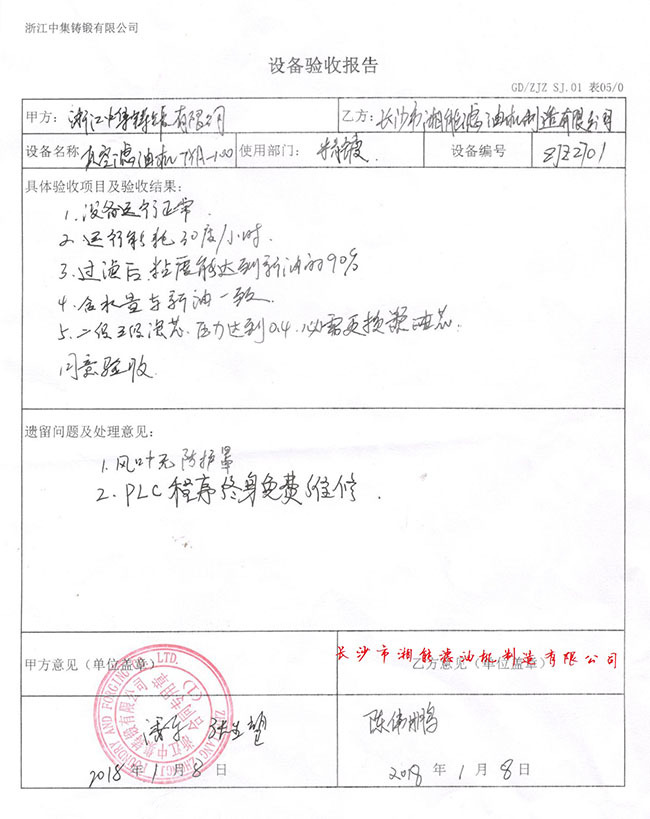 浙江中集铸锻有限公司
设备验收报告
GD/ZJZ SJ.01 表05/0
甲方: 浙江中集铸锻有限公司 乙方: 长沙市湘能滤油机制造有限公司
设备名称 真空滤油机 TYA-100 使用部门: 精锻 设备编号 ZJZJ01
具体验收项目及验收结果:
1. 设备运行正常.
2. 运行能耗 30度/小时.
3. 过滤后, 粘度能达到新油的90%
4. 含水量与新油一致.
5. 二级三级滤芯, 压力达到0.4, 必需更换滤油芯.
同意验收
遗留问题及处理意见:
1. 风叶无防护罩
2. PLC程序终身免费维修.
甲方意见（单位盖章） 乙方意见（单位盖章）
长沙市湘能滤油机制造有限公司
FOUNDRY AND FORGING CO., LTD.
浙江中集铸锻有限公司
合同专用章
(1)
陈伟鹏
2018 年 1 月 8 日 2018 年 1 月 8 日